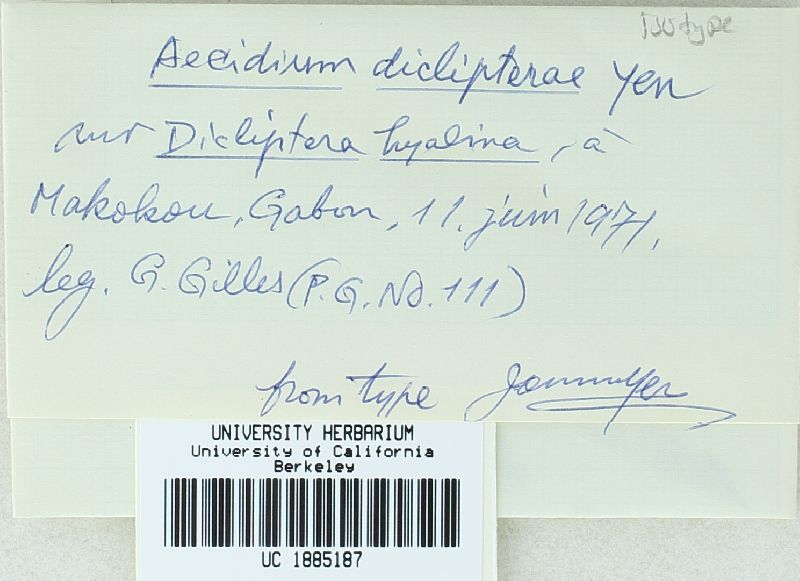 Isotype
Aecidium diclipterae Yen
sur Dicliptera hyalina, à
Makokou, Gabon, 11. juin 1971,
leg. G. Gilles (P.G. No. 111)
from type
UNIVERSITY HERBARIUM
University of California
Berkeley
UC 1885187